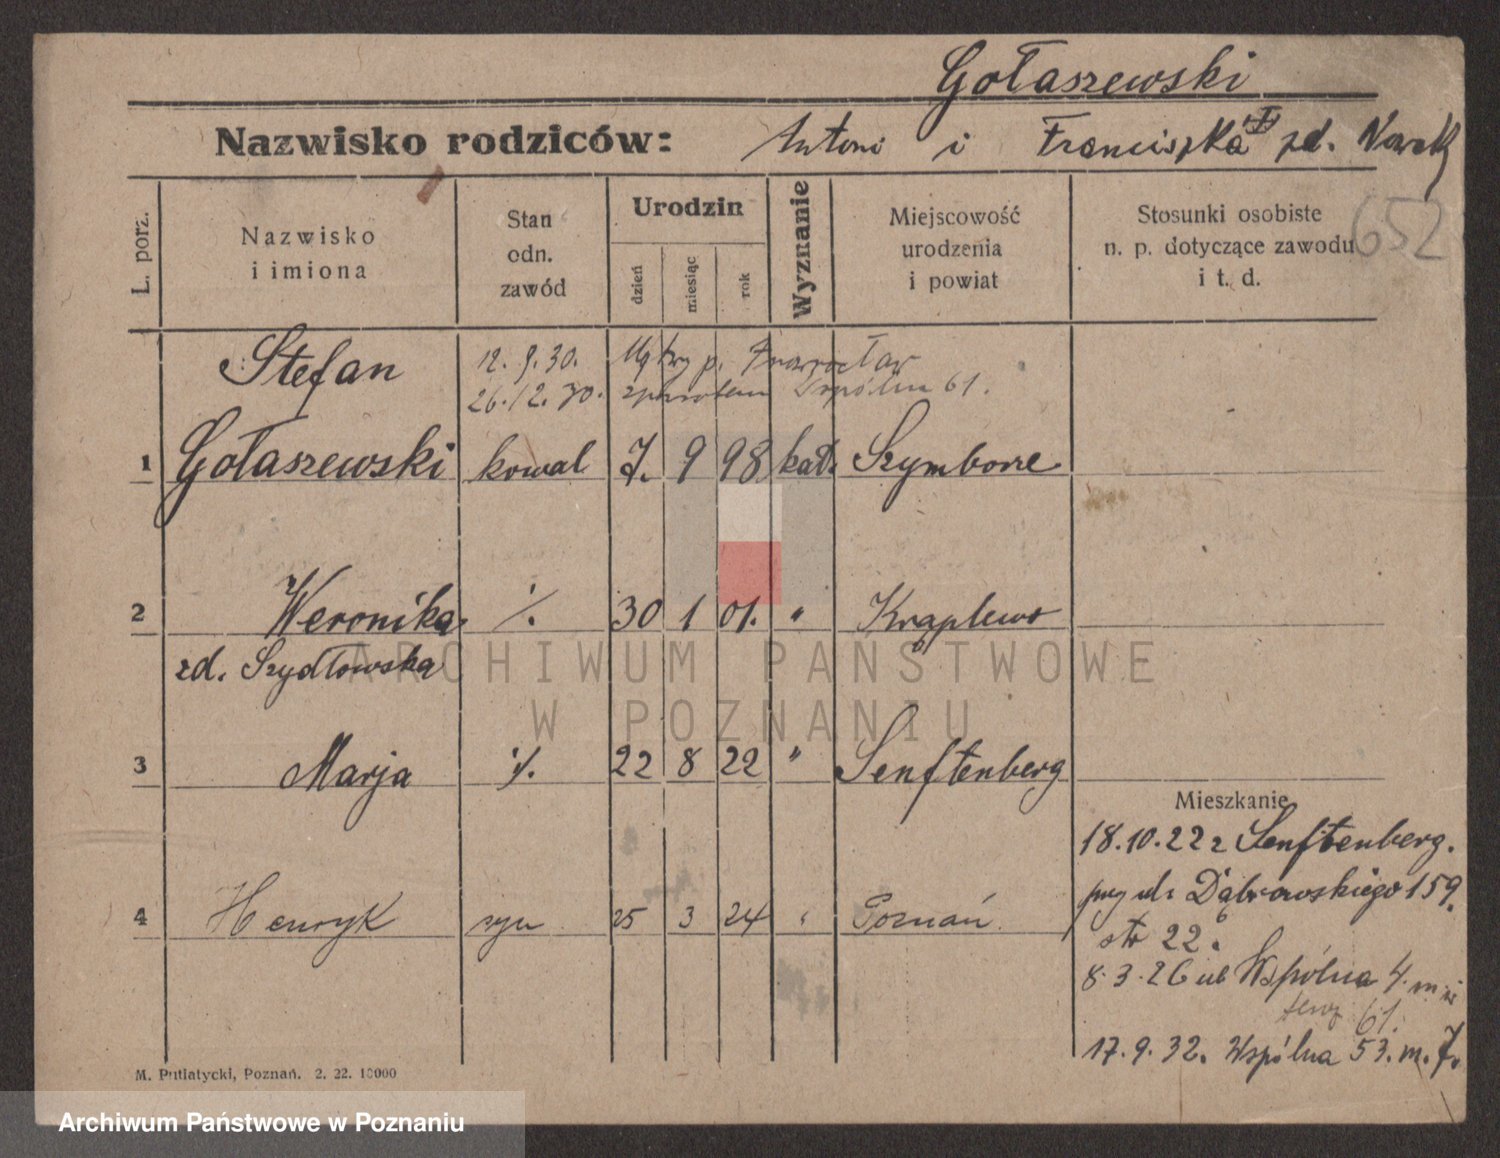 Gołaszewski
Nazwisko rodziców: Antoni i Franciszka zd. Nowak
652
L. porz.
Nazwisko i imiona
Stan odn. zawód
Urodzin
dzień miesiąc rok
Wyznanie
Miejscowość urodzenia i powiat
Stosunki osobiste n. p. dotyczące zawodu i t. d.
Stefan 12. 9. 30. Mątwy p. Inowrocław
26.12.30. zpowrotem Wspólna 61.
1 Gołaszewski kowal 7. 9 98 kat. Szymborze
2 Weronika ./. 30 1 01. " Krąplewo
zd. Szydłowska
3 Marja ./. 22 8 22 " Senftenberg
Mieszkanie
18.10.22 z Senftenberg.
przy ul. Dąbrowskiego 159.
4 Henryk syn 25 3 24 " Poznań
22.
8.3.26 ul Wspólna 4.
teraz 61.
17.9.32. Wspólna 53. m. 7.
M. Putiatycki, Poznań. 2. 22. 10000
ARCHIWUM PAŃSTWOWE
W POZNANIU
Archiwum Państwowe w Poznaniu